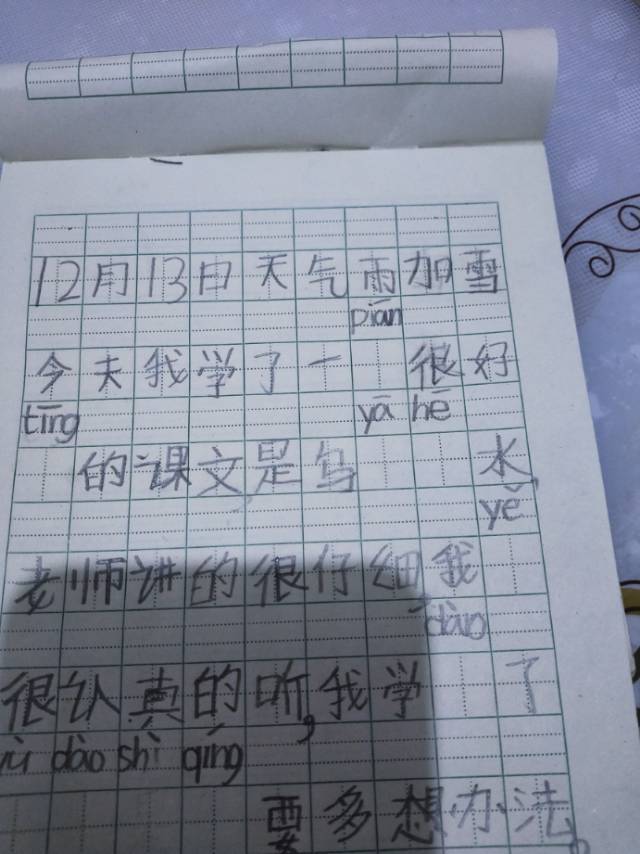 12月13日天气雨加雪
piān
今天我学了一 很好
tīng yā hē
的课文是乌 水,
yě
老师讲的很仔细,我
dào
很认真的听,我学 了
yù dào shì qíng
要多想办法。